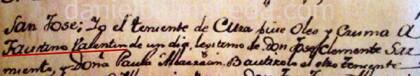 San Jose; Io el teniente de Cura puse Oleo y Crisma A
Faustino Valentin de un dia, legitimo de Don Jose Clemente Sar
miento, y Doña Paula Albarracin. Bautizolo el otro Teniente